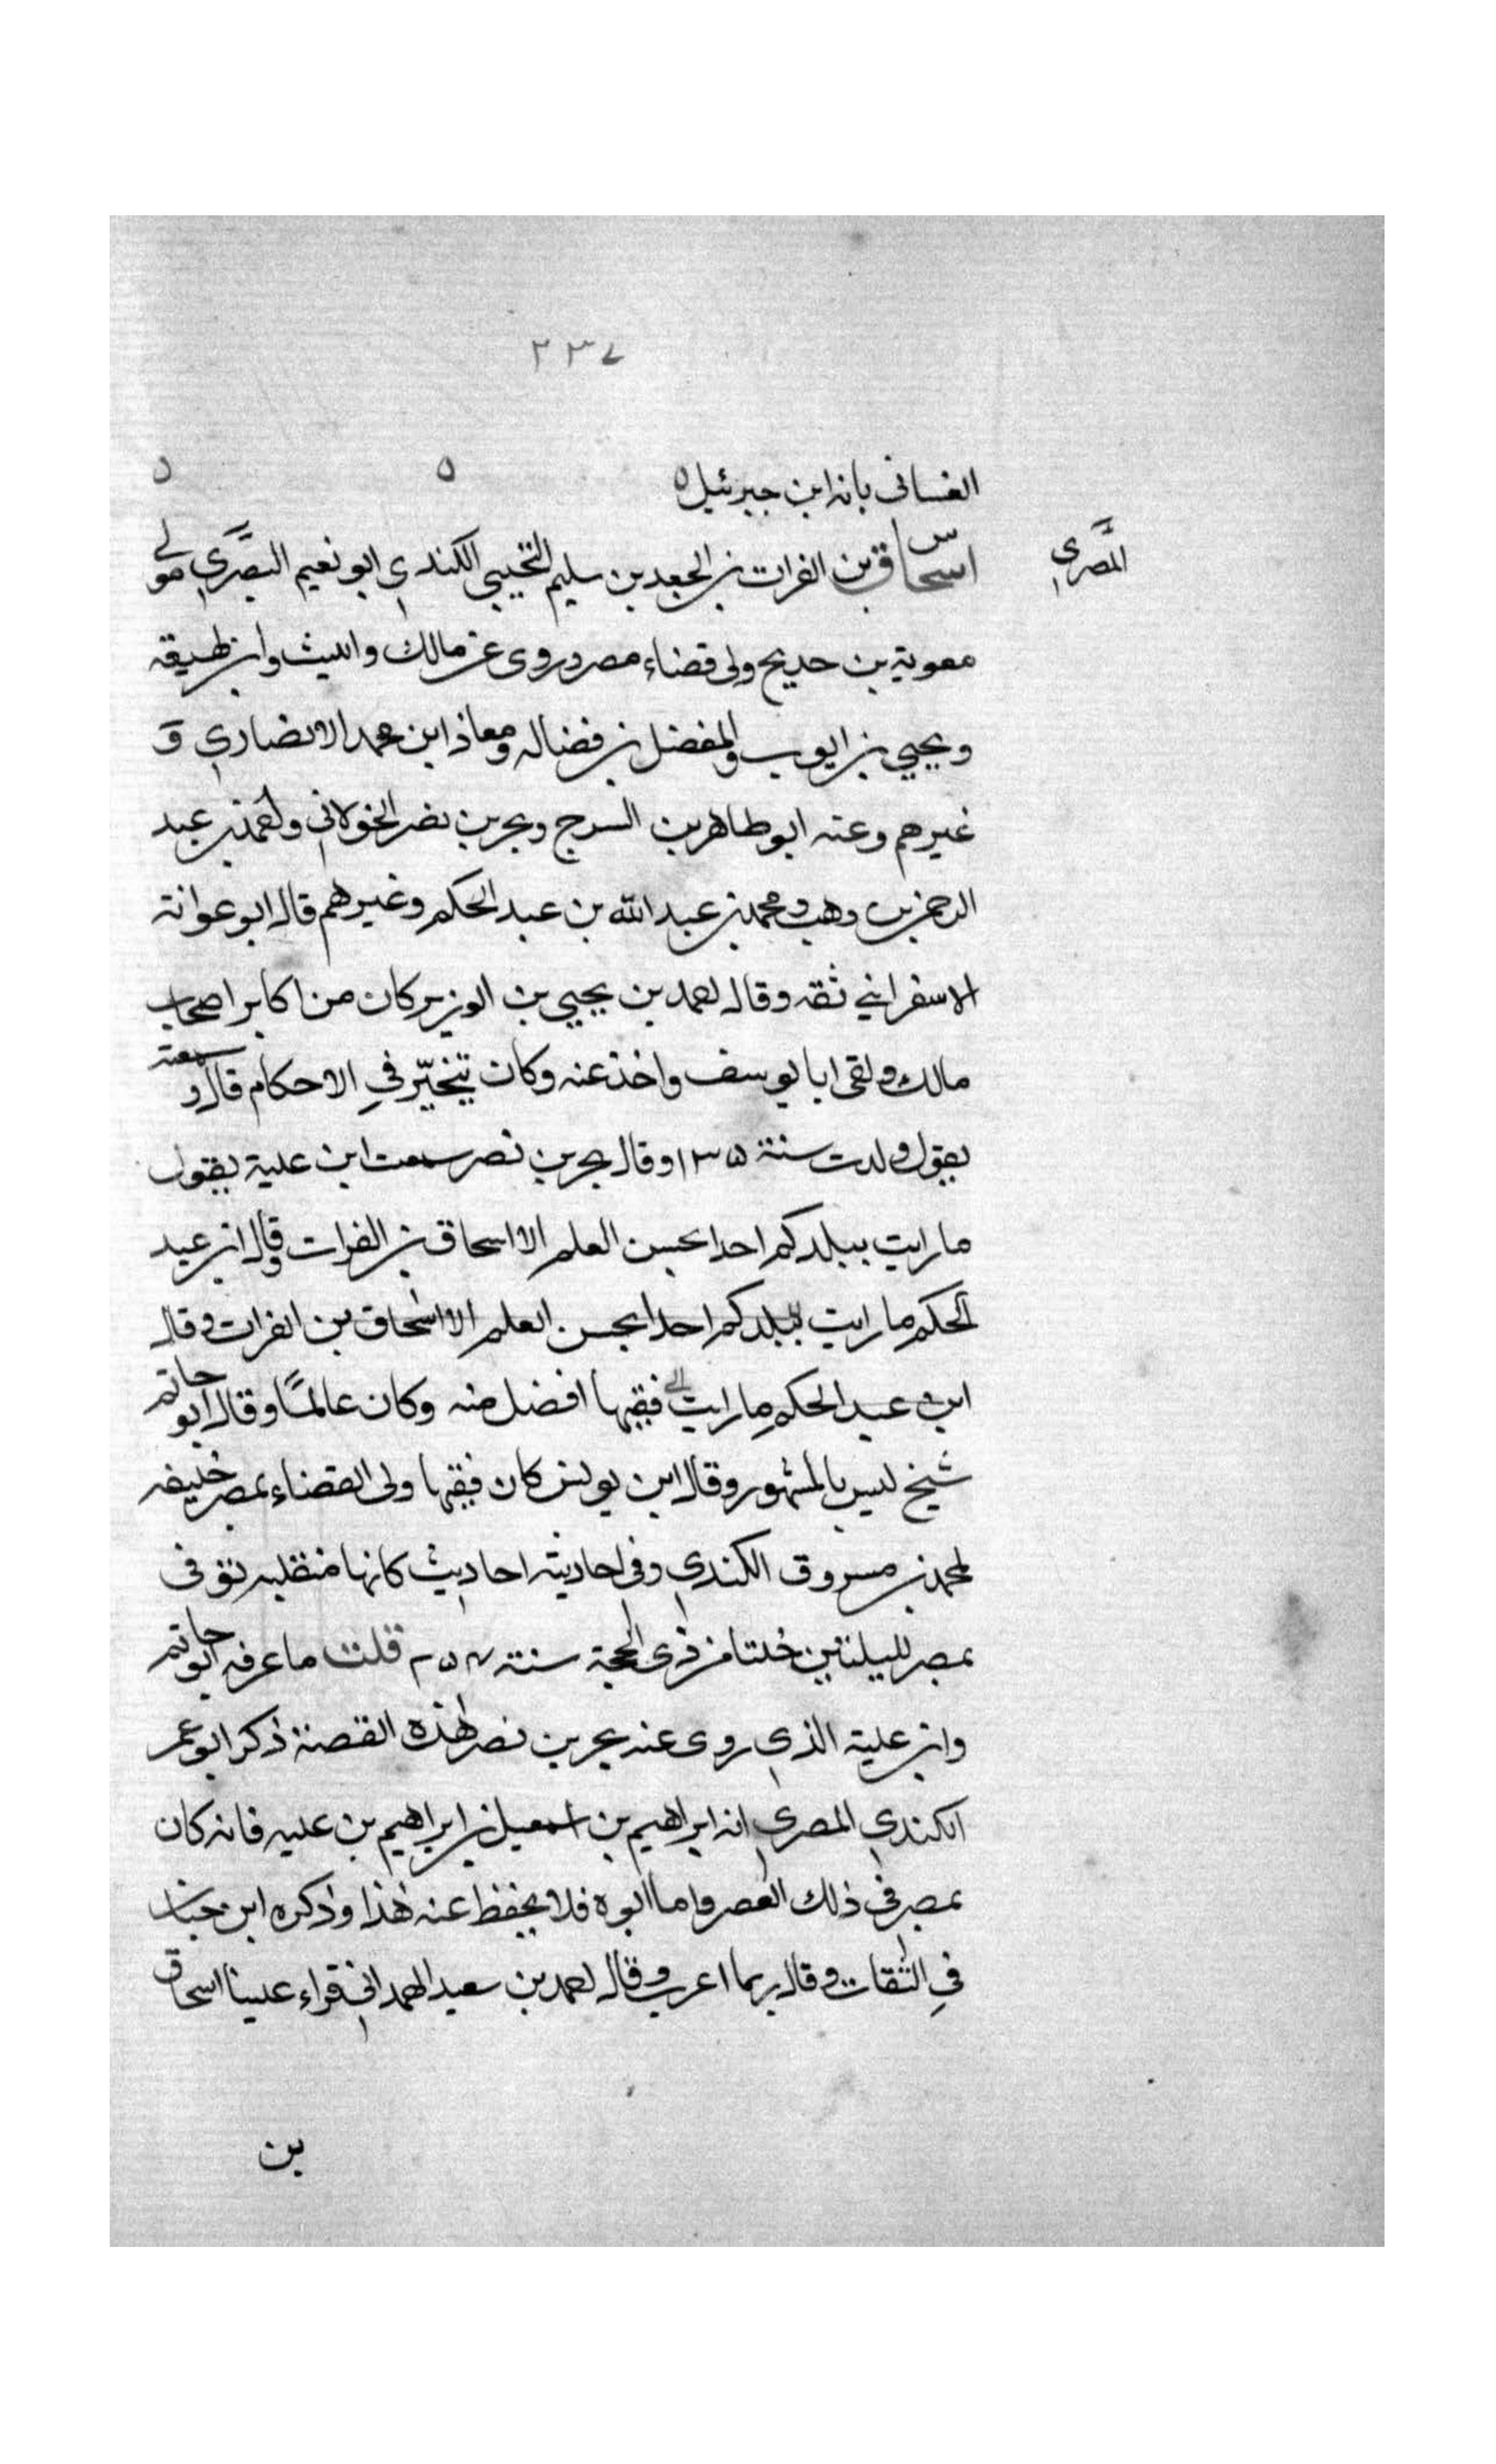 ٢٣٧
الغسانى بانه ابن جبرئيل ه ه ه
المصري
س اسحاق بن الفرات بن الجعد بن سليم التجيبي الكندي ابو نعيم البصري مولى
معوية بن حديج ولى قضاء مصر وروى عن مالك والليث وابن لهيعه
ويحيي بن ايوب والمفضل بن فضاله ومعاذ ابن محمد الانصاري و
غيرهم وعنه ابو طاهر بن السرج وبحر بن نصر الخولانى واحمد بن عبد
الرحمن بن وهب ومحمد بن عبد الله بن عبد الحكم وغيرهم قال ابو عوانة
الاسفرايني ثقه وقال احمد بن يحيي بن الوزير كان من اكابر اصحاب
مالك ولقى ابا يوسف واخذ عنه وكان يتخيّر في الاحكام قال وسمعته
يقول ولدت سنة ١٣٥ وقال بحر بن نصر سمعت ابن علية يقول
ما رايت ببلدكم احدا يحسن العلم الا اسحاق بن الفرات وقال ابن عبد
الحكم ما رايت ببلدكم احدا يحسن العلم الا اسحاق بن الفرات وقال
ابن عبد الحكم ما رايت فقيها افضل منه وكان عالمًا وقال ابو حاتم
شيخ ليس بالمشهور وقال ابن يونس كان فقيها ولى القضاء بمصر خليفه
لمحمد بن مسروق الكندي وفى احاديثه احاديث كانها منقلبه توفى
بمصر لليلتين خلتا من ذى الحجة سنة قلت ما عرفه ابو حاتم
وابن علية الذي روى عنه بحر بن نصر هذه القصة ذكر ابو عمر
الكندي المصري انه ابراهيم بن اسمعيل بن ابراهيم بن عليه فانه كان
بمصر فى ذلك العصر واما ابوه فلا يحفظ عنه هذا وذكره ابن حبان
في الثقات وقال ربما اغرب وقال احمد بن سعيد الهمدانى قراء علينا اسحاق
بن